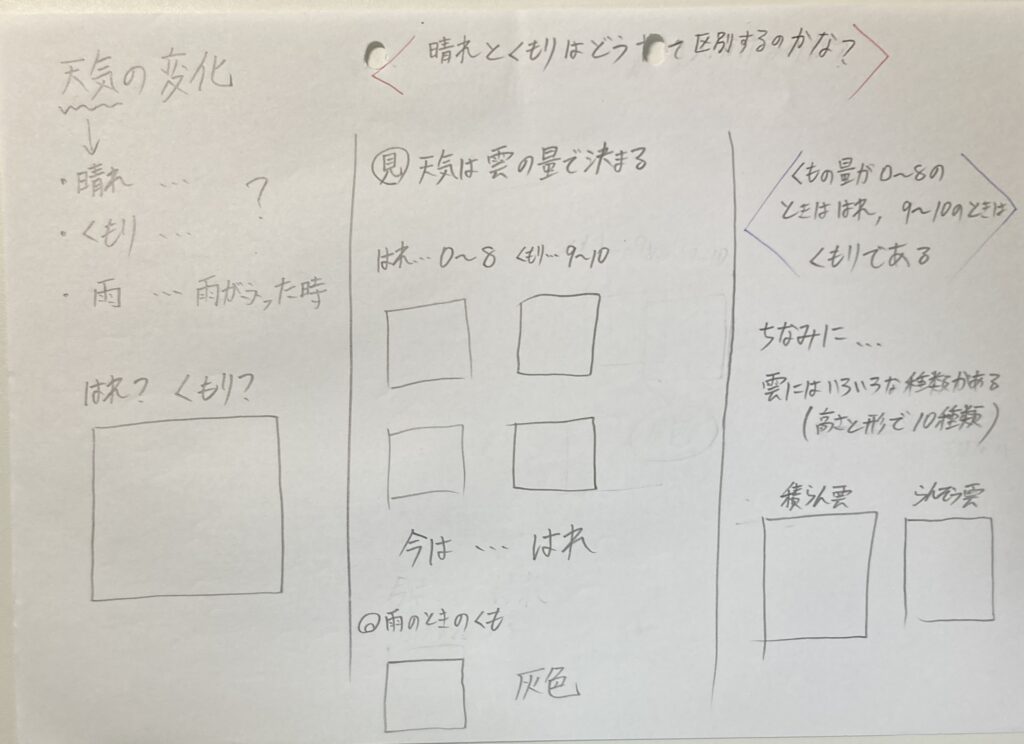 天気の変化
・晴れ … ?
・くもり …
・雨 … 雨がふった時
はれ? くもり?
晴れとくもりはどう て区別するのかな?
見 天気は雲の量で決まる
はれ… 0〜8 くもり… 9〜10
今は … はれ
◎雨のときのくも
灰色
くもの量が0〜8の
ときははれ, 9〜10のときは
くもりである
ちなみに…
雲にはいろいろな種類がある
(高さと形で10種類)
積らん雲 らんそう雲